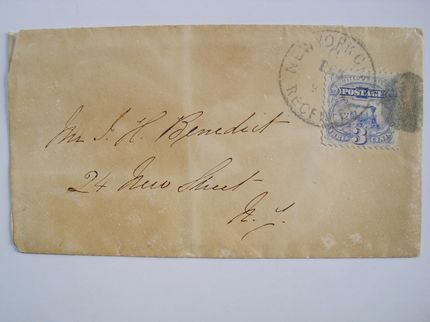 NEW YORK C
RECE
POSTAGE
3
Mr J. H. Benedict
24 New Street
N. Y.